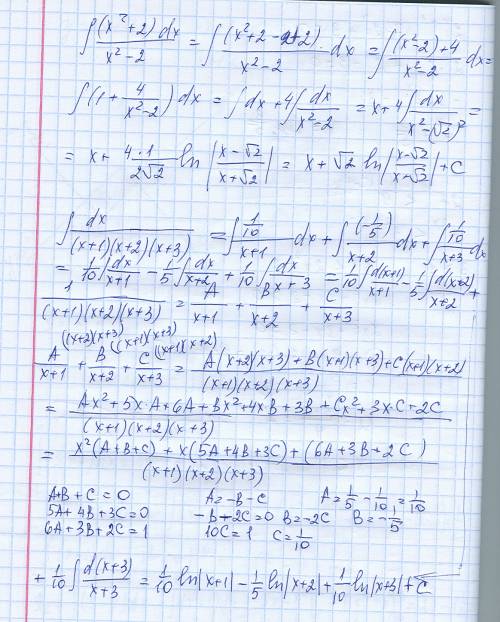 ∫ (x²+2)dx / (x²-2) = ∫ (x²+2-2+2) / (x²-2) · dx = ∫ ((x²-2)+4) / (x²-2) dx =
∫ (1 + 4/(x²-2)) dx = ∫ dx + 4∫ dx/(x²-2) = x + 4∫ dx/(x²-(√2)²) =
= x + (4·1)/(2√2) ln |(x-√2)/(x+√2)| = x + √2 ln |(x-√2)/(x+√2)| + C
∫ dx / ((x+1)(x+2)(x+3)) = ∫ (1/10)/(x+1) dx + ∫ (-1/5)/(x+2) dx + ∫ (1/10)/(x+3) dx
= 1/10 ∫ dx/(x+1) - 1/5 ∫ dx/(x+2) + 1/10 ∫ dx/(x+3) = 1/10 ∫ d(x+1)/(x+1) - 1/5 ∫ d(x+2)/(x+2) +
1 / ((x+1)(x+2)(x+3)) = A/(x+1) + B/(x+2) + C/(x+3)
A((x+2)(x+3) / (x+1) + B((x+1)(x+3) / (x+2) + C((x+1)(x+2) / (x+3) = (A(x+2)(x+3)+B(x+1)(x+3)+C(x+1)(x+2)) / ((x+1)(x+2)(x+3))
= (Ax²+5x·A+6A+Bx²+4xB+3B+Cx²+3x·C+2C) / ((x+1)(x+2)(x+3))
= (x²(A+B+C)+x(5A+4B+3C)+(6A+3B+2C)) / ((x+1)(x+2)(x+3))
A+B+C=0 A=-B-C A=1/5-1/10=1/10
5A+4B+3C=0 -B+2C=0 B=-2C B=-1/5
6A+3B+2C=1 10C=1 C=1/10
+ 1/10 ∫ d(x+3)/(x+3) = 1/10 ln|x+1| - 1/5 ln|x+2| + 1/10 ln|x+3| + C